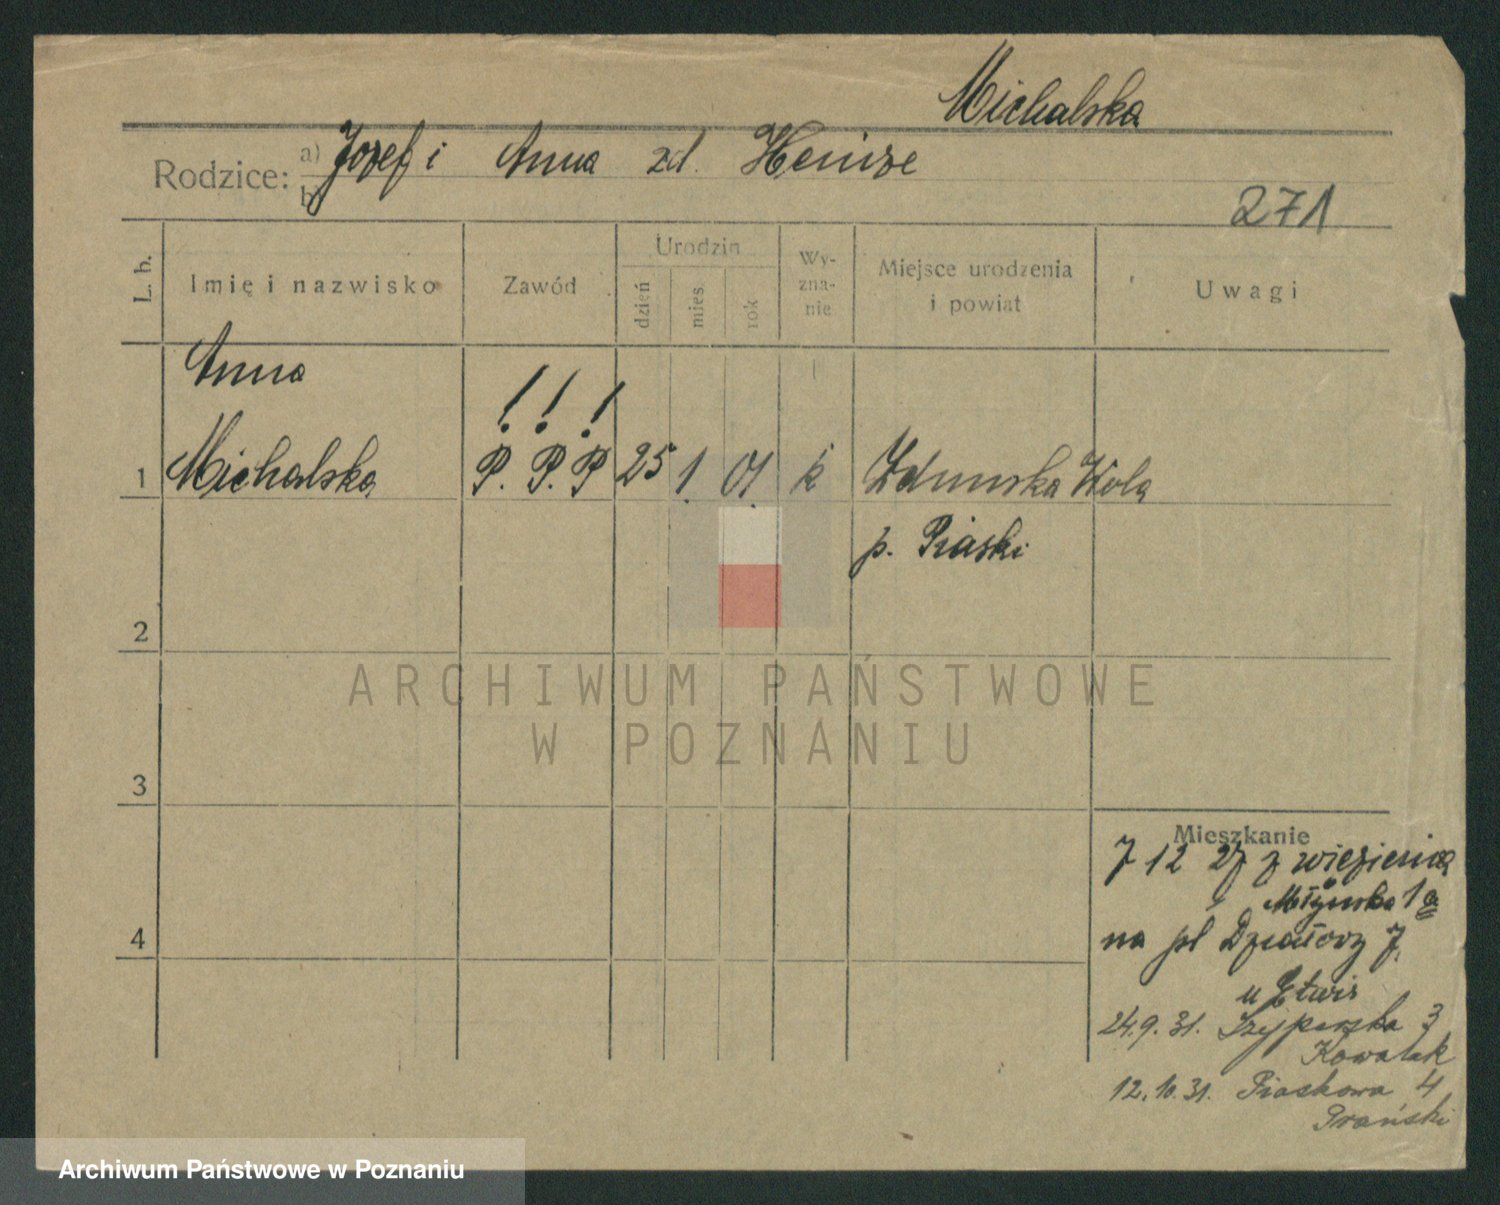 Michalska
Rodzice: a) Józef i Anna zd. Heinze
b)
271
L. b.
Imię i nazwisko
Zawód
Urodzin
dzień
mies.
rok
Wy-
zna-
nie
Miejsce urodzenia
i powiat
Uwagi
Anna
1 Michalska
! ! !
P. P. P
25 1. 01 k Zdunska Wola
p. Piaski
2
ARCHIWUM PAŃSTWOWE
W POZNANIU
3
Mieszkanie
7 12 27 z więzienia
Młyńska 1a
4
na pl Działowy 7.
u
24.9.31. Szyperska 3
Kowalak
12.10.31. Piaskowa 4
Archiwum Państwowe w Poznaniu